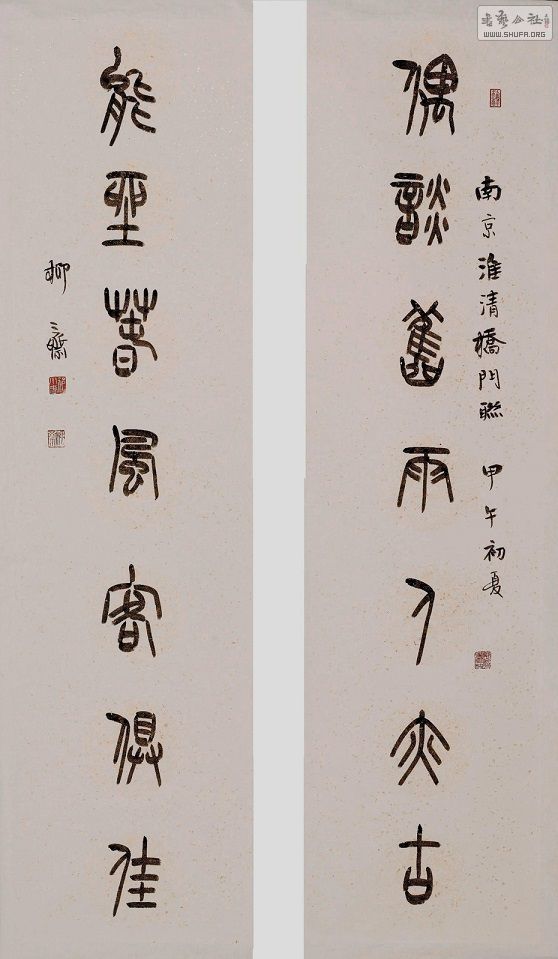 书艺公社
WWW.SHUFA.ORG
南京淮清橋門聯 甲午初夏
偶談舊雨人亦古
能坐春風客俱佳
柳齋